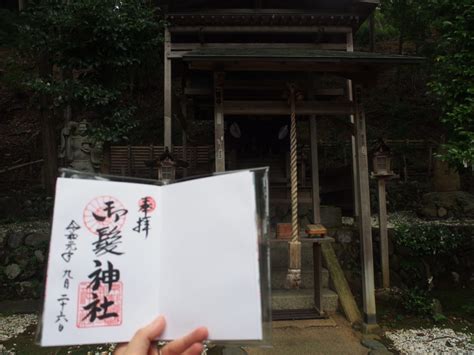 奉拝
御髪神社
令和元年九月二十六日